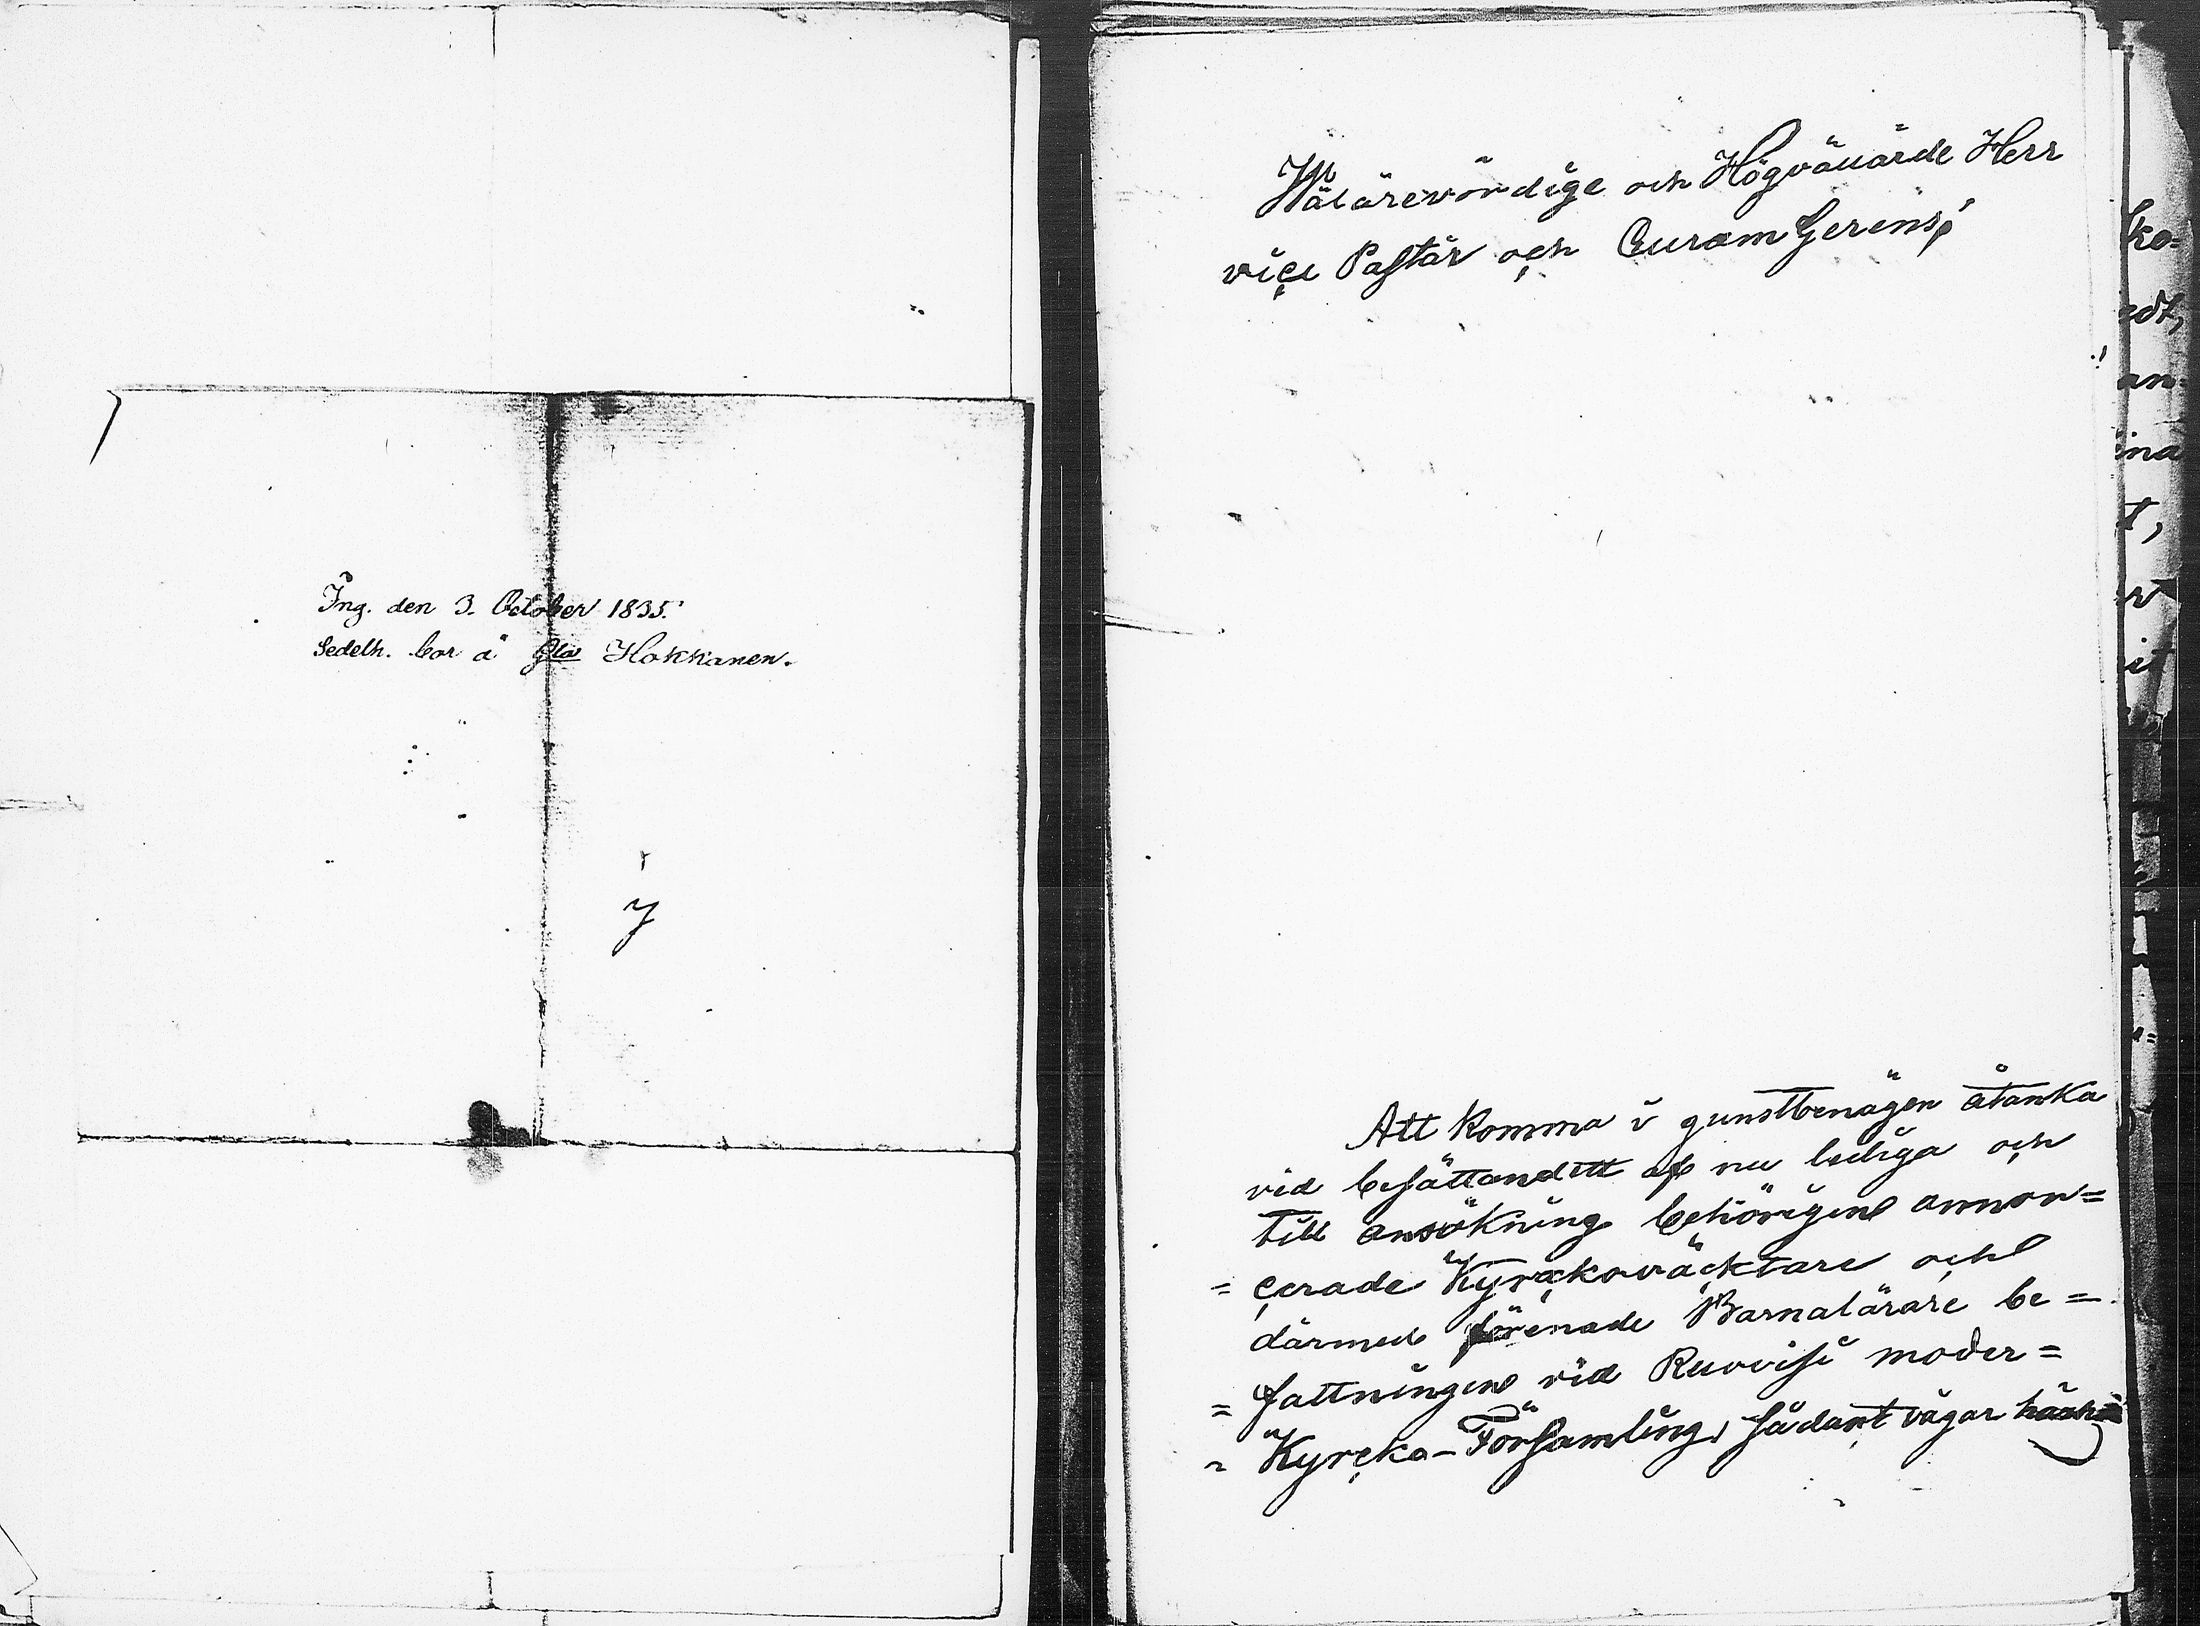 Ing. den 3. October 1835.
Sedelh. bor å Gla Hokkanen.
y
Wälärewördige och Högvällärde Herr
vice Pastor och Curam Gerens!
Att komma i gunstbenägen åtanka
vid besättandett af nu lediga och
till ansökning behörigen annon=
=cerade Kyrckoväcktare och
därmed förenade Barnalärare be=
=fattningen vid Ruovisi moder=
=Kyrcko-Församling, sådant vågar